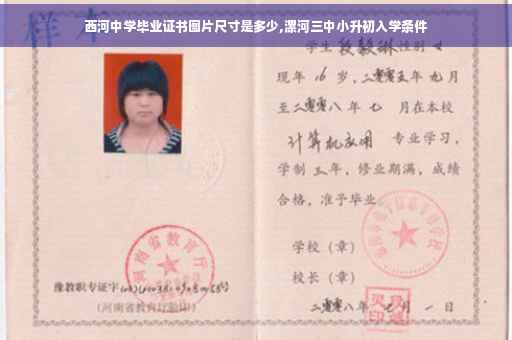 西河中学毕业证书图片尺寸是多少,漯河三中小升初入学条件
样本
学生段毅琳性别女
现年16岁,二零零五年九月
至二零零八年七月在本校
计算机应用专业学习,
学制三年,修业期满,成绩
合格,准予毕业
学校（章）
校长（章）
二零零八年 月一日
河南省教育厅
豫教职专证字
（河南省教育厅验印）